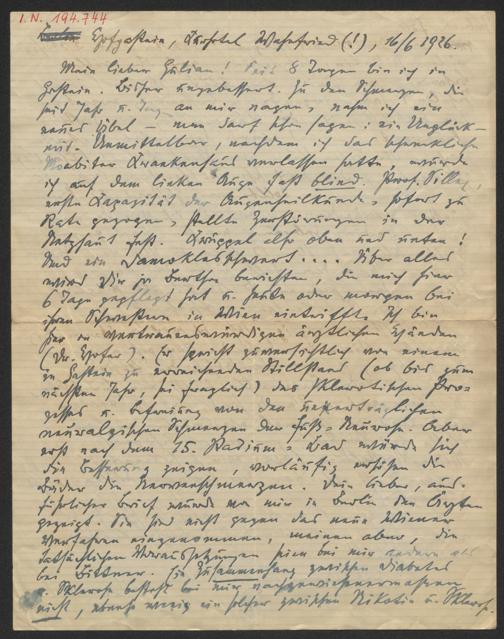 I.N. 194.744
Hofgastein, Kurhotel Wahnfried (!), 16/6 1926.
Mein lieber Julian! Seit 8 Tagen bin ich in
Gastein. Bisher ungebessert. Zu den Schmerzen, die
seit Jahr u. Tag an mir nagen, nahm ich ein
neues Übel – man darf schon sagen: ein Unglück –
mit. Unmittelbar, nachdem ich das schreckliche
Moabiter Krankenhaus verlassen hatte, wurde
ich auf dem linken Auge fast blind. Prof.
erste Kapazität der Augenheilkunde, sofort zu
Rate gezogen, stellte Zerstörungen in der
Netzhaut fest. Krüppel also oben und unten!
Und ein Damoklesschwert.... Über alles
wird Dir ja Bertha berichten, die mich hier
6 Tage gepflegt hat u. heute oder morgen bei
ihren Schwestern in Wien eintrifft. Ich bin
hier in vertrauenswürdigen ärztlichen Händen
(Dr. ). Er spricht zuversichtlich von einem
in Gastein zu erreichenden Stillstand (ob bis zum
nächsten Jahr, sei fraglich) des sklerotischen Pro-
zesses u. Befreiung von den unerträglichen
neuralgischen Schmerzen der Fuß-Neurose. Aber
erst nach dem 15. Radium-Bad würde sich
die Besserung zeigen, vorläufig erhöhen die
Bäder die Nervenschmerzen. Dein lieber, aus-
führlicher Brief wurde von mir in Berlin den Ärzten
gezeigt. Sie sind nicht gegen das neue Wiener
Verfahren eingenommen, meinen aber, die
tatsächlichen Voraussetzungen seien bei mir andere als
bei Bittner. Ein Zusammenhang zwischen Diabetes
u. Sklerose besteht bei mir nachgewiesenermaßen
nicht, ebenso wenig ein solcher zwischen Nikotin u. Sklerose.